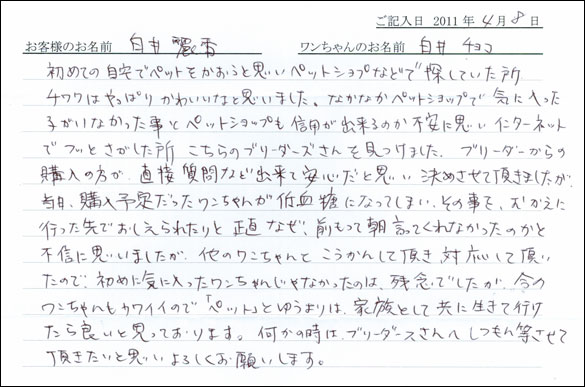 ご記入日 2011年4月8日
お客様のお名前 白井 麗香 ワンちゃんのお名前 白井 チョコ
初めての自宅でペットをかおうと思いペットショップなどで探していた所
チワワはやっぱりかわいいなと思いました。なかなかペットショップで気に入った
子がいなかった事とペットショップも信用が出来るのか不安に思いインターネット
でフッとさがした所 こちらのブリーダーズさんを見つけました。ブリーダーからの
購入の方が、直接質問など出来て安心だと思い決めさせて頂きましたが、
当日、購入予定だったワンちゃんが低血糖になってしまい、その事で、むかえに
行った先でおしえられたりと正直なぜ、前もって朝言ってくれなかったのかと
不信に思いましたが、他のワンちゃんとこうかんして頂き対応して頂い
たので、初めに気に入ったワンちゃんじゃなかったのは、残念でしたが、今の
ワンちゃんもカワイイので「ペット」とゆうよりは、家族として共に生きて行け
たら良いと思っております。何かの時は、ブリーダースさんへしつもん等させて
頂きたいと思いよろしくお願いします。